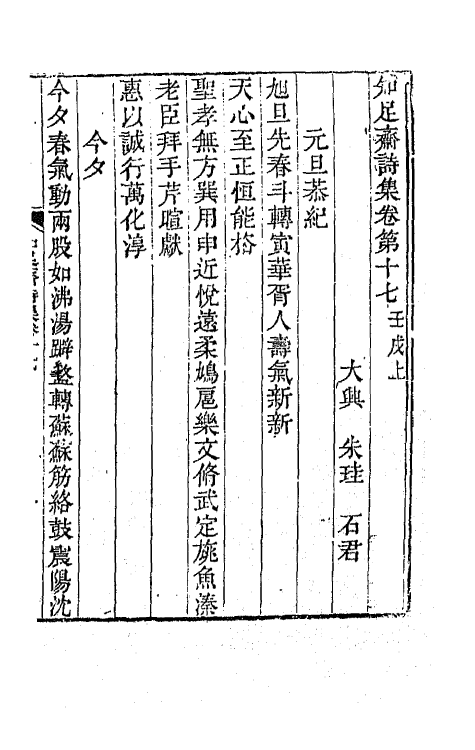 知足齋詩集卷第十七 壬戌上
大興 朱珪 石君
元旦恭紀
旭旦先春斗轉寅華胥人壽氣新新
天心至正恒能格
聖孝無方巽用申近悅遠柔鳩扈樂文脩武定旐魚溱
老臣拜手芹暄獻
惠以誠行萬化淳
今夕
今夕春氣動兩股如沸湯躃蹩轉蘇蘇筋絡鼓震陽沈